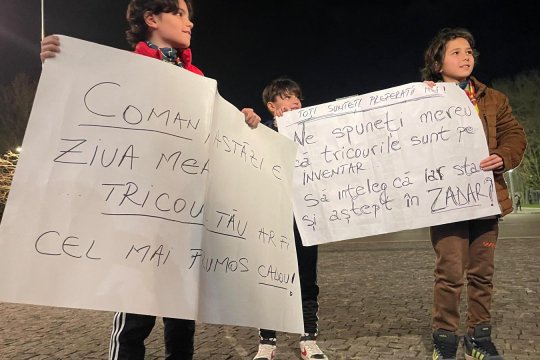 COMAN, ASTĂZI E
ZIUA MEA
TRICOUL TĂU AR FI
CEL MAI FRUMOS CADOU!
TOȚI SUNTEȚI PREFERAȚII MEI!
Ne spuneți mereu
că tricourile sunt pe
INVENTAR
Să înțeleg că iar stau
și aștept în ZADAR?